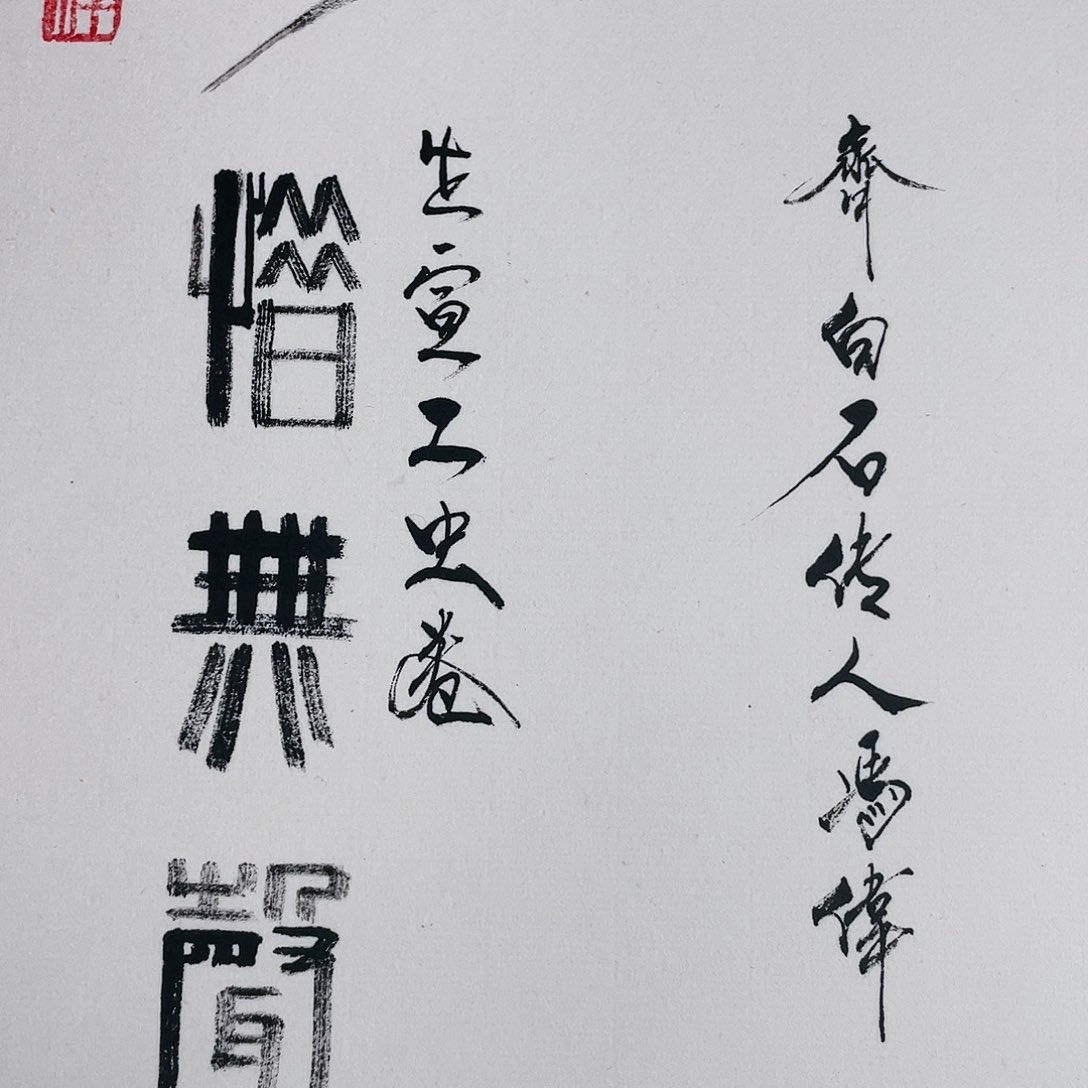 齊白石传人馮偉
生宣工史卷
惜無聲